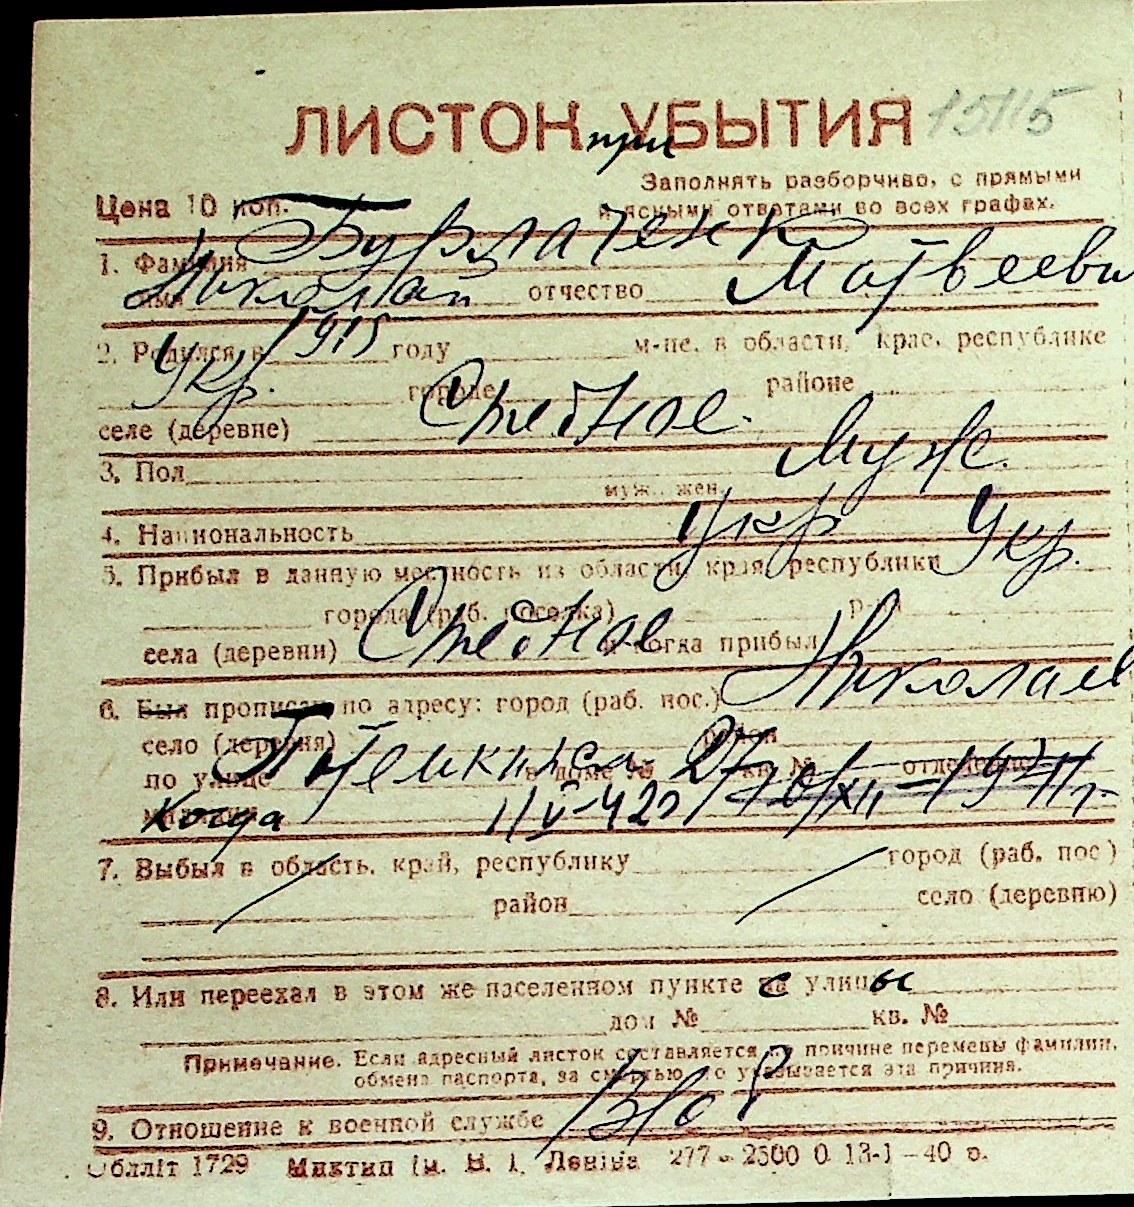 15115
ЛИСТОК при УБЫТИЯ
Заполнять разборчиво, с прямыми
Цена 10 коп. и ясными ответами во всех графах.
1. Фамилия Бурлаченко
имя Николай отчество Матвееви
2. Родился в 1915 году м-це, в области, крае, республике
Укр. городе районе
селе (деревне) Степное.
3. Пол Муж.
муж., жен.
4. Национальность укр
5. Прибыл в данную местность из области, края, республики Укр.
города (раб. поселка) р-на
села (деревни) Степное и когда прибыл
6. Был прописан по адресу: город (раб. пос.) Николаев
село (деревня) район
по улице Потемкинса в доме № 27 кв. № отделение
милиции Когда 11/V-42г 10/XII-1941г.
7. Выбыл в область, край, республику город (раб. пос.)
район село (деревню)
8. Или переехал в этом же населенном пункте с улицы
дом № кв. №
Примечание. Если адресный листок составляется по причине перемены фамилии,
обмена паспорта, за смертью, то указывается эта причина.
9. Отношение к военной службе
Облліт 1729 Миктип ім. В. І. Леніна 277 - 2500 0 13-1-40 р.